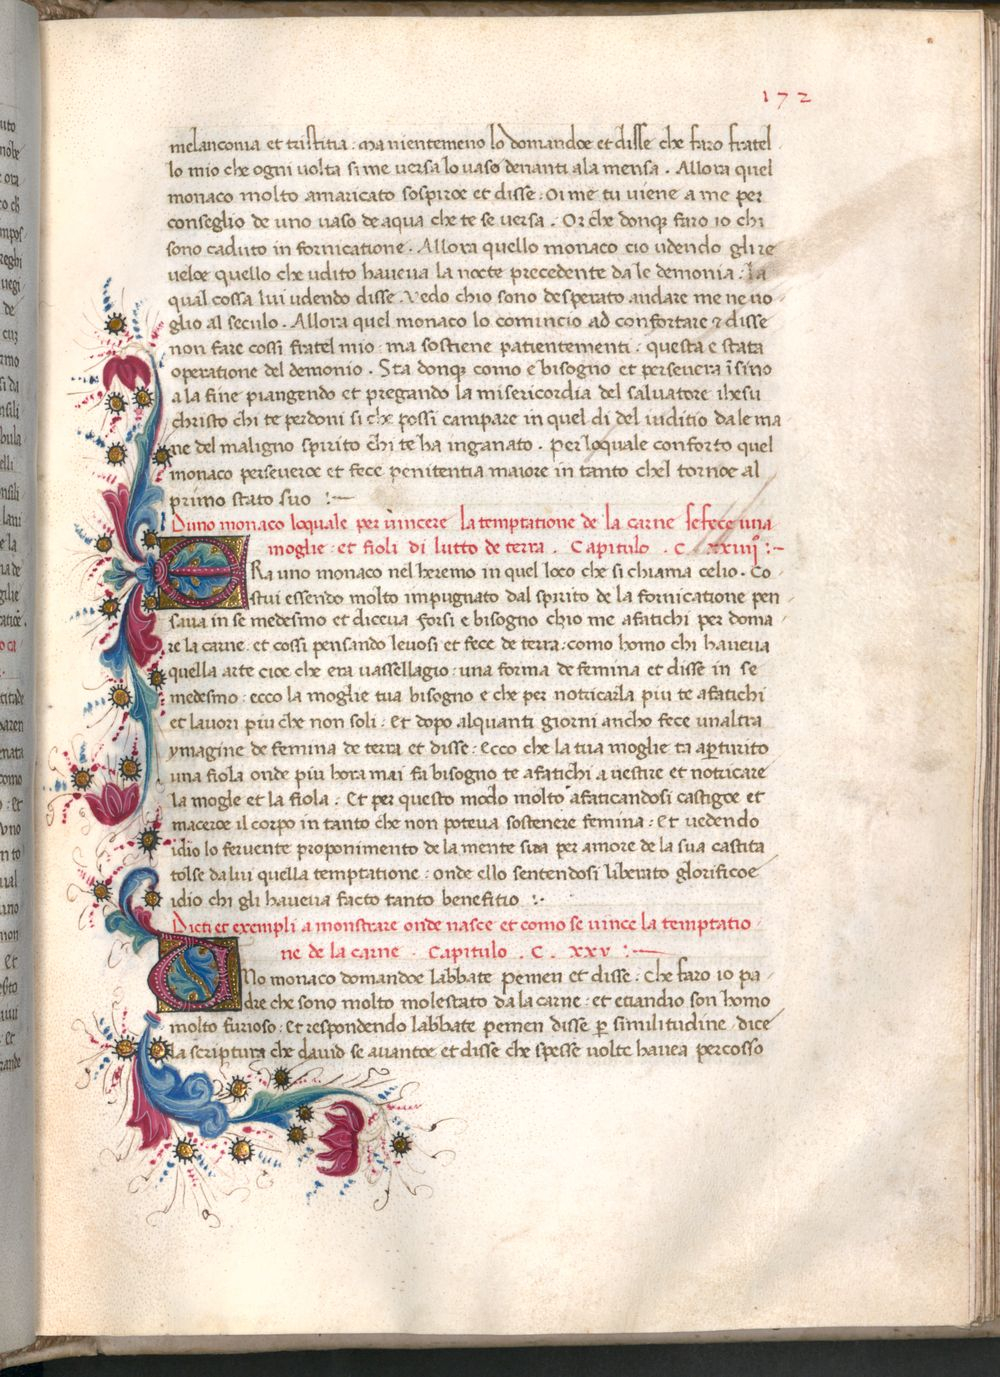 172
melanconia et tristitia : ma nientemeno lo domandoe et disse che faro fratel
lo mio che ogni volta si me versa lo vaso denanti ala mensa . Allora quel
monaco molto amaricato sospiroe et disse : Oi me tu viene a me per
conseglio de uno vaso de aqua che te se versa . Or che donqȝ faro io chi
sono caduto in fornicatione . Allora quello monaco cio udendo gli re
veloe quello che udito haveva la nocte precedente da le demonia : la
qual cossa lui udendo disse . Vedo chio sono desperato andare me ne vo
glio al seculo . Allora quel monaco lo comincio ad confortare ⁊ disse
non fare cossi fratel mio : ma sostiene patientementi : questa e stata
operatione del demonio . Sta donqȝ como e bisogno et persevera ĩsino
a la fine piangendo et pregando la misericordia del salvatore ihesu
christo chi te perdoni si che possi campare in quel di del iuditio da le ma
ne del maligno spirito chi te ha inganato . Per loquale conforto quel
monaco perseveroe et fece penitentia maiore in tanto chel tornoe al
primo stato suo :~
Duno monaco loquale per vincere la temptatione de la carne se fece una
moglie : et fioli di lutto de terra . Capitulo . C . xxiiijº :~
ERa uno monaco nel heremo in quel loco che si chiama celio . Co
stui essendo molto impugnato dal spirito de la fornicatione pen
sava in se medesmo et diceva forsi e bisogno chio me afatichi per doma
re la carne : et cossi pensando levosi et fece de terra : como homo chi haveva
quella arte cioe che era vassellagio : una forma de femina et disse in se
medesmo : ecco la moglie tua bisogno e che per noticarla piu te afatichi
et lavori piu che non soli : Et dopo alquanti giorni ancho fece unaltra
ymagine de femina de terra et disse : Ecco che la tua moglie ta aꝑturito
una fiola onde piu hora mai fa bisogno te afatichi a vestire et noticare
la mogle et la fiola : Et per questo modo molto afaticandosi castigoe et
maceroe il corpo in tanto che non poteva sostenere femina : Et vedendo
idio lo fervente proponimento de la mente sua per amore de la sua castita
tolse da lui quella temptatione : onde ello sentendosi liberato glorificoe
idio chi gli haveva facto tanto benefitio :~
Dicti et exempli a monstrare onde nasce et como se vince la temptatio
ne de la carne . Capitulo . C . xxv :~
UNo monaco domandoe labbate Pemen et disse : Che faro io pa
dre che sono molto molestato da la carne : et etiandio son homo
molto furioso : Et respondendo labbate pemen disse ꝑ similitudine : dice
la scriptura che david se avantoe et disse che spesse volte havea percosso